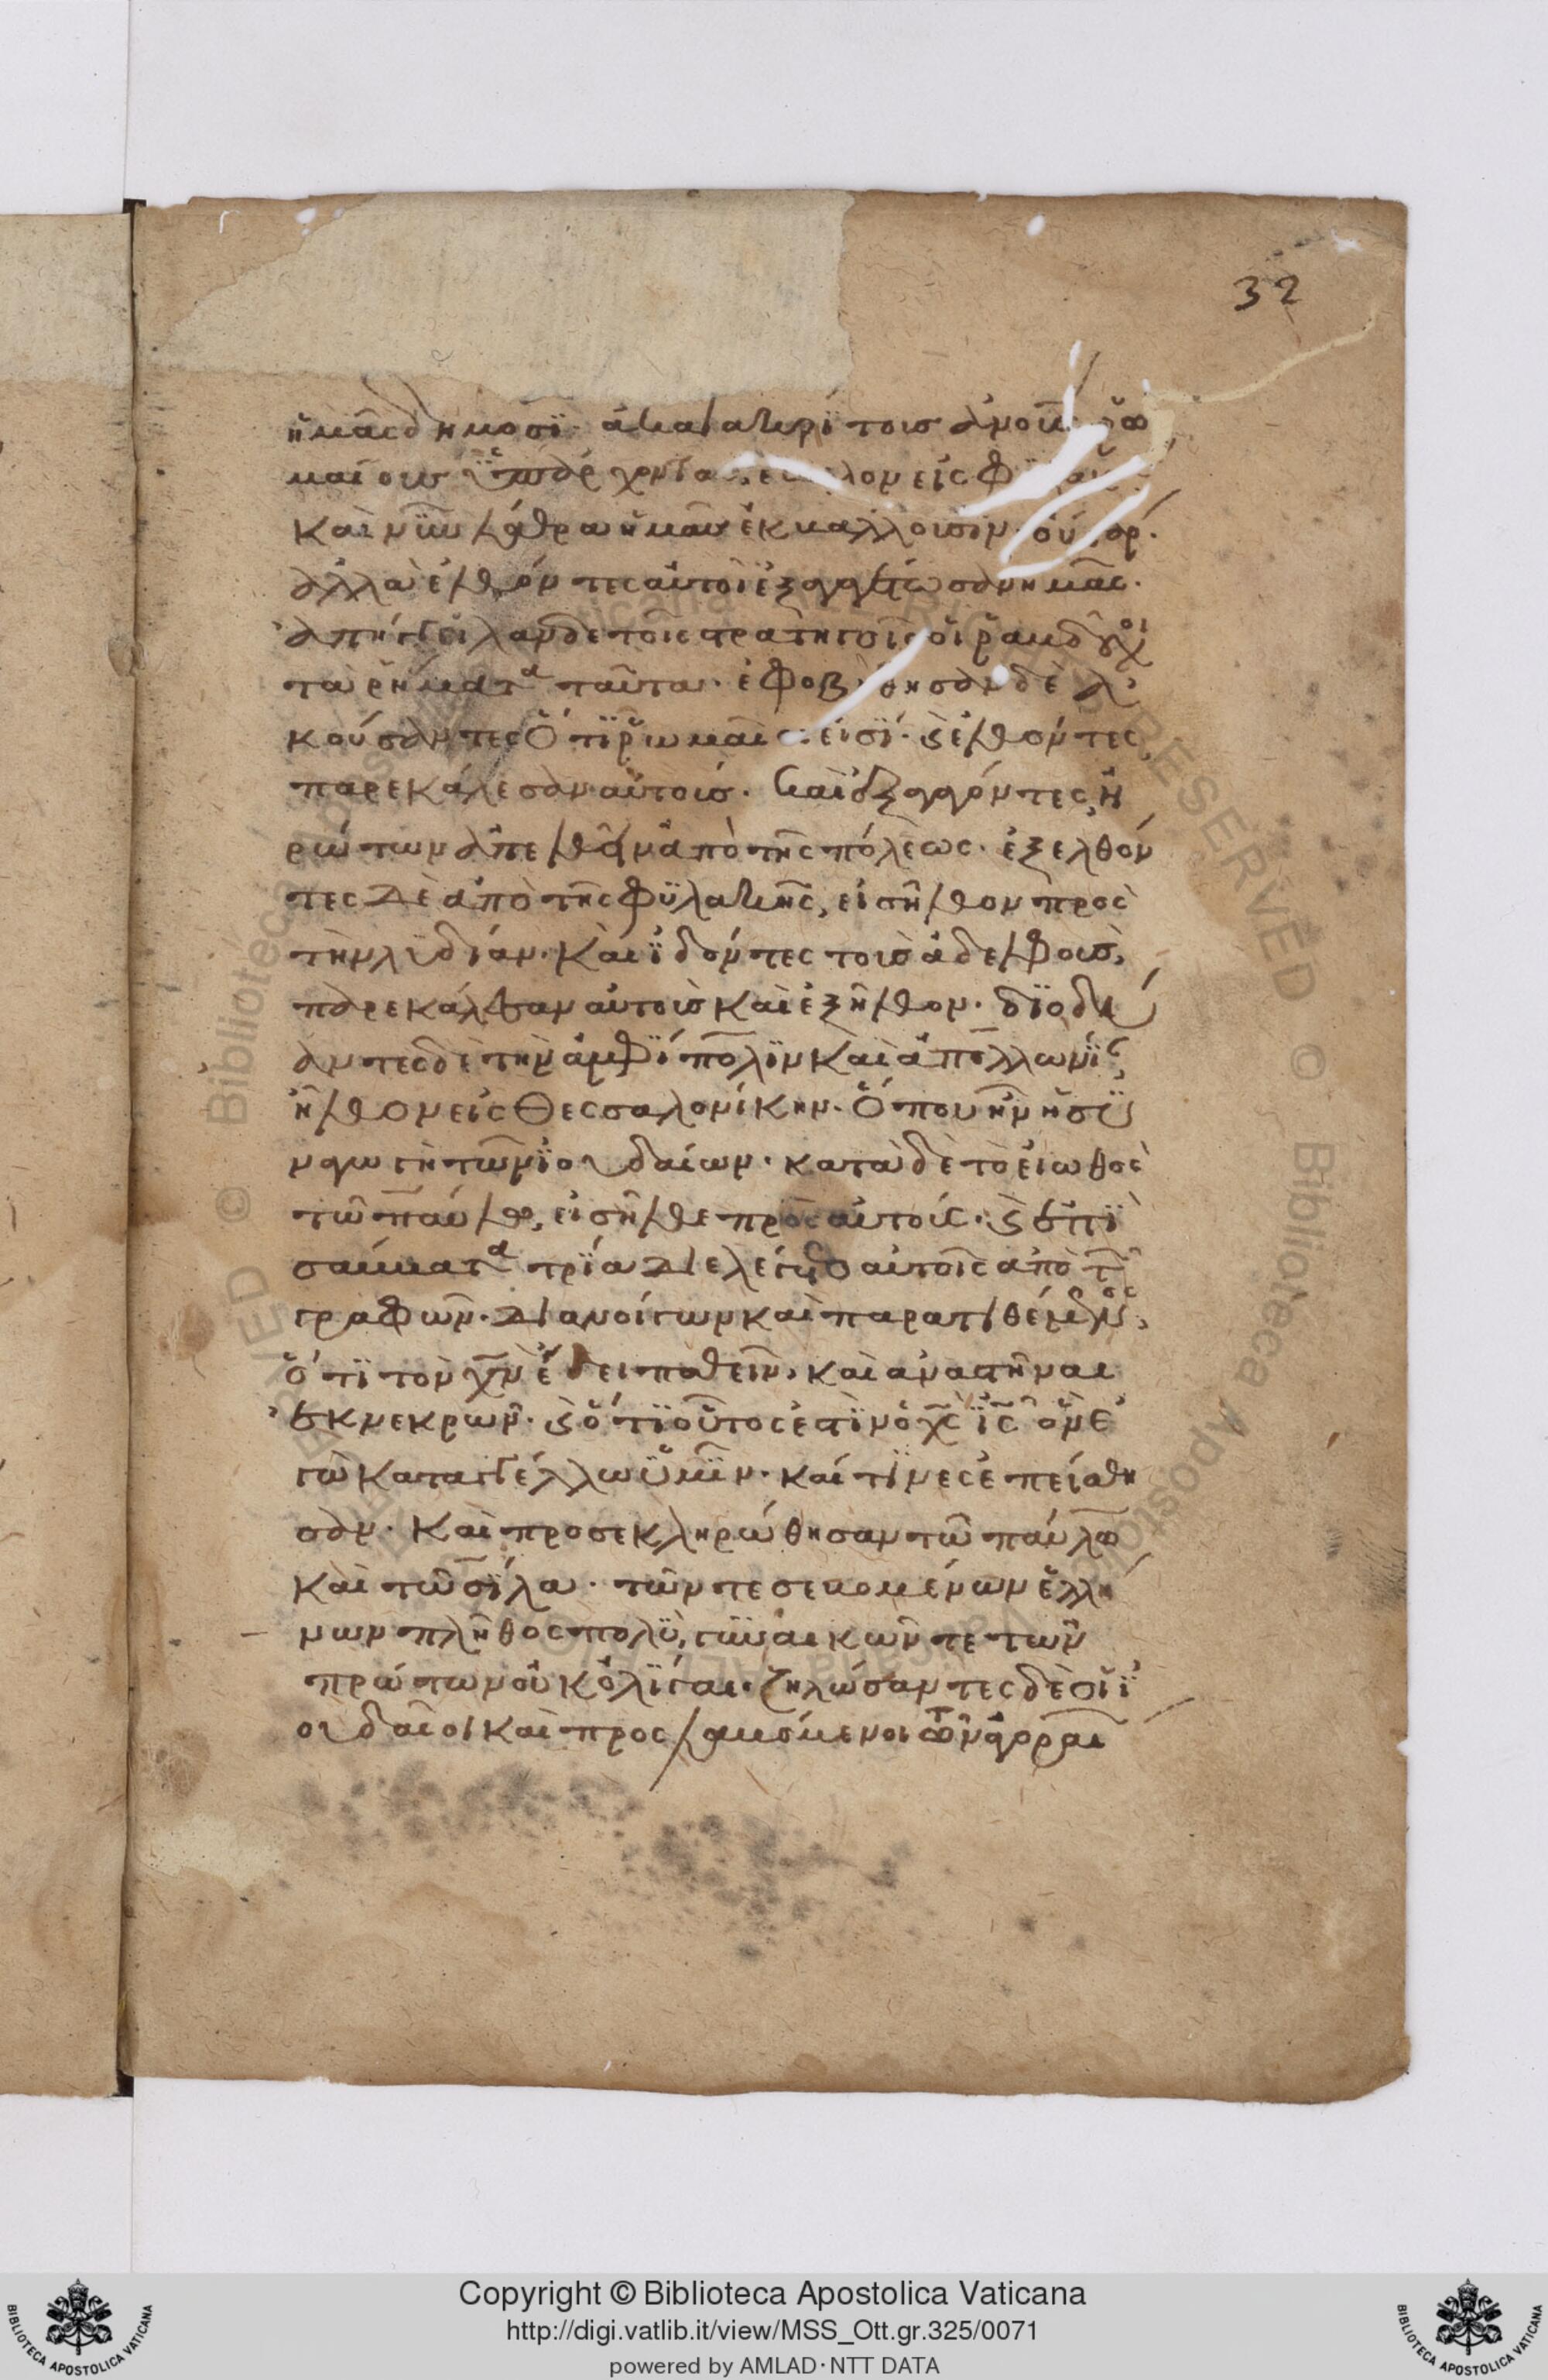 32
ἡμᾶς δημοσΐ· ἀκατακρίτους ἀνοὺς ῥω
μαίους ϋπάρχοντας, ἔβαλον εἰς φϋλακὴν
καὶ νῦν λάθρα ἡμᾶς ἐκβάλλουσϊν· οὐ γάρ·
ἀλλὰ ἐλθόντες αὐτοὶ ἐξαγαγέτωσαν ἡμᾶς.
ἀπήγγειλαν δὲ τοῖς στρατηγοῖς οἱ ῥαβδοῦχοι
τὰ ῥήματα ταῦτα· ἐφοβήθησαν δὲ ἀ
κούσαντες ὅτϊ ῥωμαῖοι εἰσϊ· ϗ ἐλθόντες
παρεκάλεσαν αὐτούς. καὶ ἐξαγαγόντες, ἠ
ρώτων ἀπελθεῖν ἀπὸ τῆς πόλεως· ἐξελθόν
τες δὲ ἀπὸ τῆς φϋλακῆς, εἰσῆλθον πρὸς
τὴν λυδίαν· καὶ ϊδόντες τοὺς ἀδελφοὺς,
παρεκάλεσαν αὐτοὺς καὶ ἐξῆλθον· δϊοδεύ
σαντες δὲ τὴν ἀμφίπολϊν καὶ ἀπολλωνί
ἦλθον εἰς Θεσσαλονίκην· ὅπου ἦν ἡ σϋ
ναγωγὴ τῶν ϊουδαίων· κατὰ δὲ τὸ εἰωθὸς
τῶ παύλω, εἰσῆλθε πρὸς αὐτούς· ϗ ἐπϊ
σάββατα τρία διελέγετο αὐτοῖς ἀπὸ τ
γραφῶν· διανοίγων καὶ παρατιθέμενος,
ὅτϊ τὸν χν ἔδει παθεῖν, καὶ ἀναστῆναι
ἐκ νεκρῶν· ϗ ὅτϊ οὗτος ἐστϊν ὁ χς ϊς ὃν ἐ
γὼ καταγγέλλω ϋμῖν· καί τϊνες ἐπείσθη
σαν· καὶ προσεκληρώθησαν τῶ παύλω
καὶ τῶ σϊλα· τῶν τε σεβομένων ἑλλή
νων πλῆθος πολϋ, γϋναικῶν τε τῶν
πρώτων οὐκ ὀλϊγαι· ζηλώσαντες δὲ οἱ ϊ
ουδαῖοι καὶ προσλαβόμενοι τῶν ἀγοραί
Copyright © Biblioteca Apostolica Vaticana
http://digi.vatlib.it/view/MSS_Ott.gr.325/0071
powered by AMLAD·NTT DATA